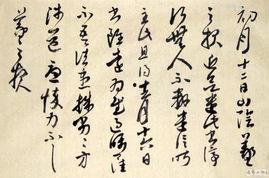 初月十二日山陰羲
之報近欲遣此書停
行無人不辦遣信昨
至此且得去月十六日
書雖遠為慰過囑卿
佳不吾諸患殊劣劣方
涉道憂悴力不具
羲之報